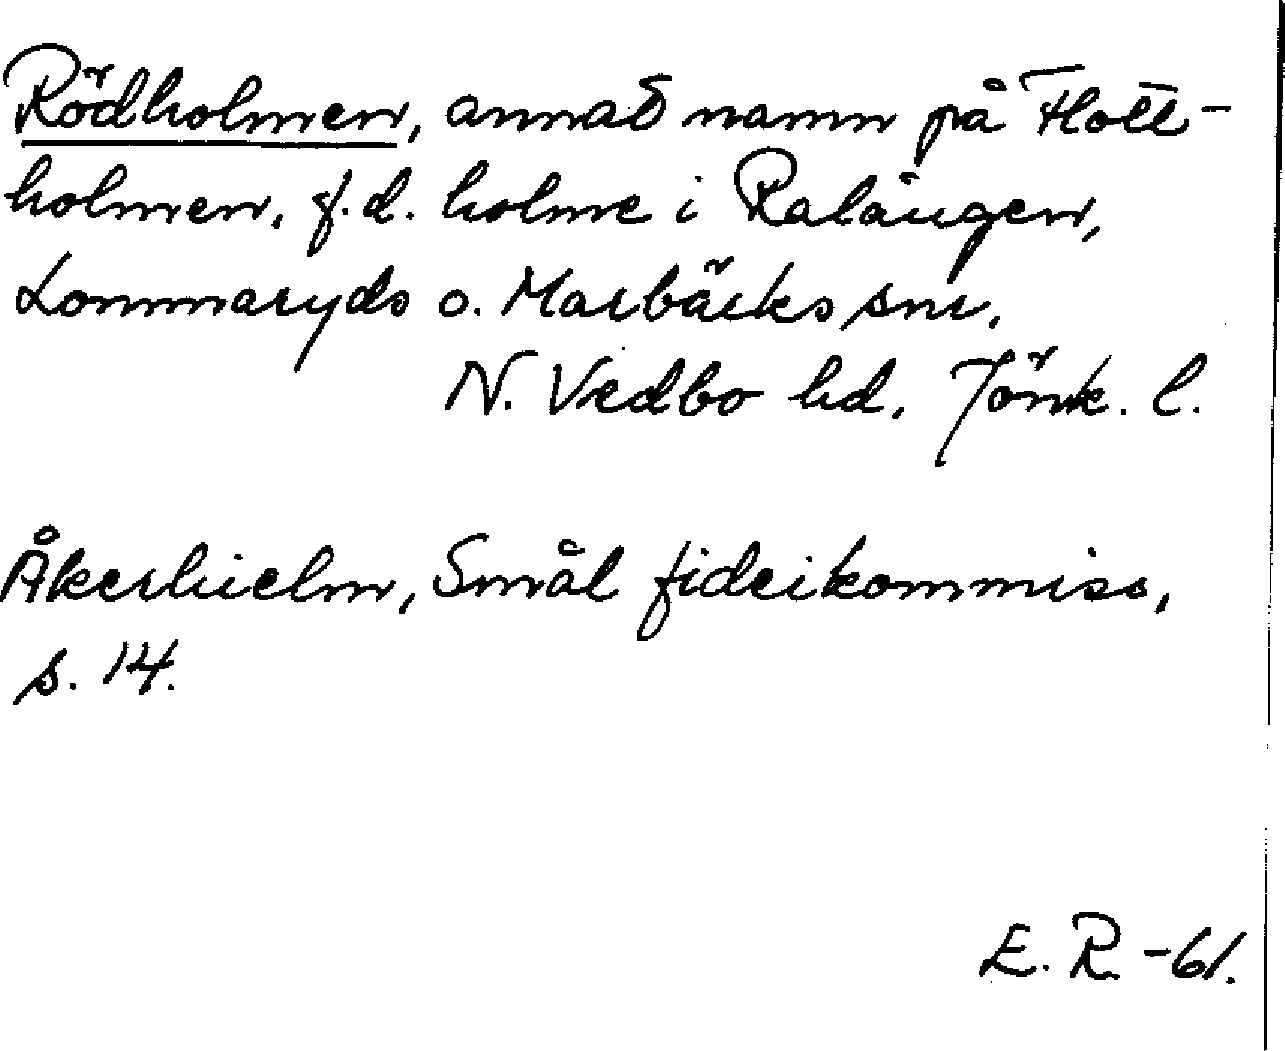 Rödholmen, annat namn på Flott-
holmen, f.d. holme i Ralången,
Lommaryds o. Marbäcks snr,
N. Vedbo hd, Jönk. l.
Åkerhielm, Smål fideikommiss,
s. 14.
E. R. -61.